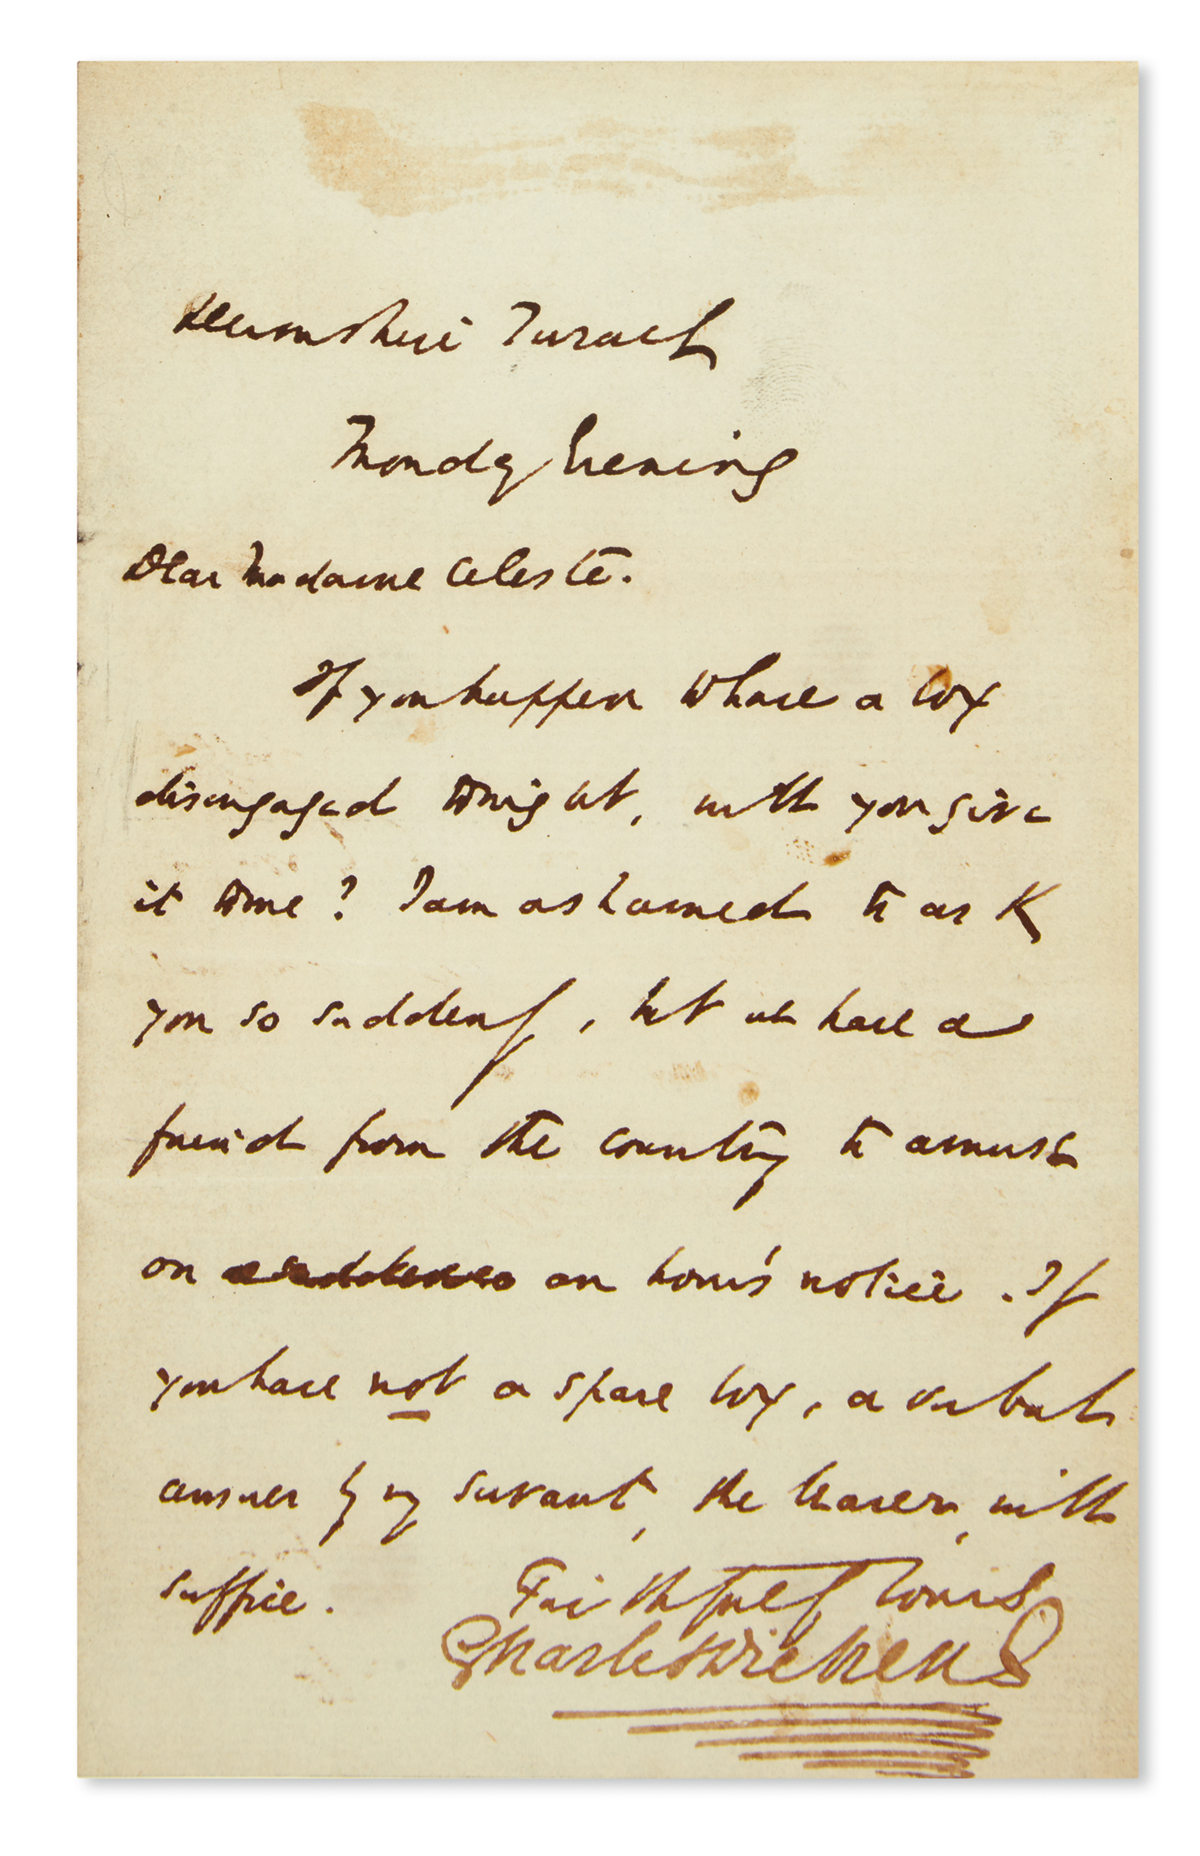 Devonshire Terrace
Monday Evening
Dear Madame Celeste.
If you happen to have a box
disengaged tonight, will you give
it to me? I am ashamed to ask
you so suddenly, but we have a
friend from the country to amuse
on an hour's notice. If
you have not a spare box, a verbal
answer by my servant, the bearer, will
suffice.
Faithfully Yours
Charles Dickens